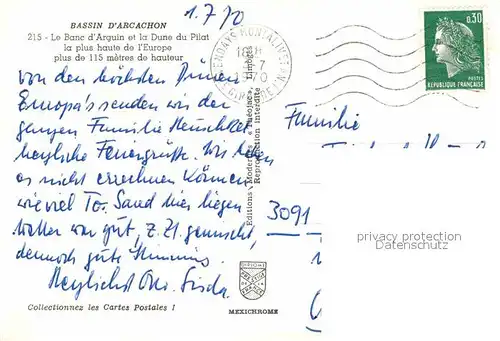 BASSIN D'ARCACHON
215 - Le Banc d'Arguin et la Dune du Pilat
la plus haute de l'Europe
plus de 115 mètres de hauteur
1.7.70
von den höchsten Dünen
Europa's senden wir der
ganzen Familie
herzliche Feriengrüße. Wir haben
es nicht errechnen können
wie viel To. Sand hier liegen
Wetter war gut, z. Zt. gemischt,
dennoch gute Stimmung
Herzlichst
Collectionnez les Cartes Postales !
Editions - Modernes
Reproduction interdite
MEXICHROME
18 H
-7
1970
0,30
POSTES
REPUBLIQUE FRANÇAISE
Familie
3091
privacy protection
Datenschutz